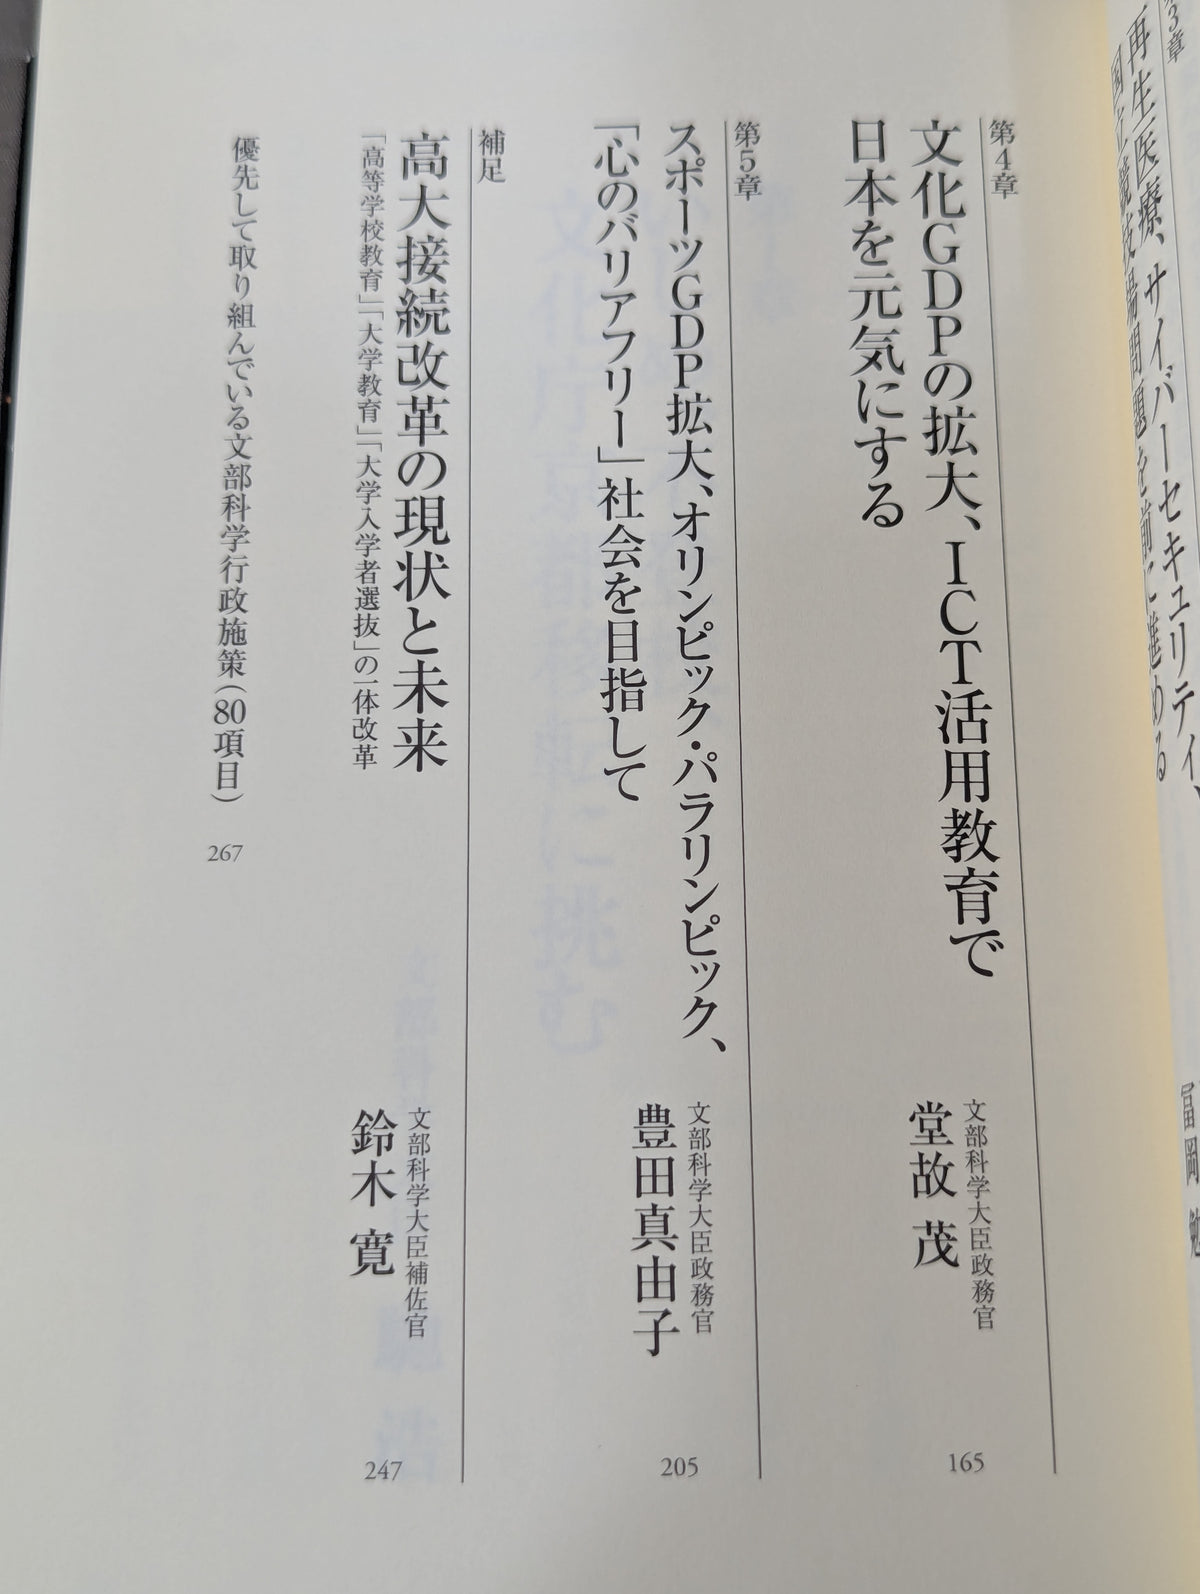 第3章
再生医療、サイバーセキュリティ、
国立競技場問題を前に進める
冨岡 勉
第4章
文化GDPの拡大、ICT活用教育で
日本を元気にする
文部科学大臣政務官
堂故 茂
165
第5章
スポーツGDP拡大、オリンピック・パラリンピック、
「心のバリアフリー」社会を目指して
文部科学大臣政務官
豊田真由子
205
補足
高大接続改革の現状と未来
「高等学校教育」「大学教育」「大学入学者選抜」の一体改革
文部科学大臣補佐官
鈴木 寛
247
優先して取り組んでいる文部科学行政施策（80項目）
267